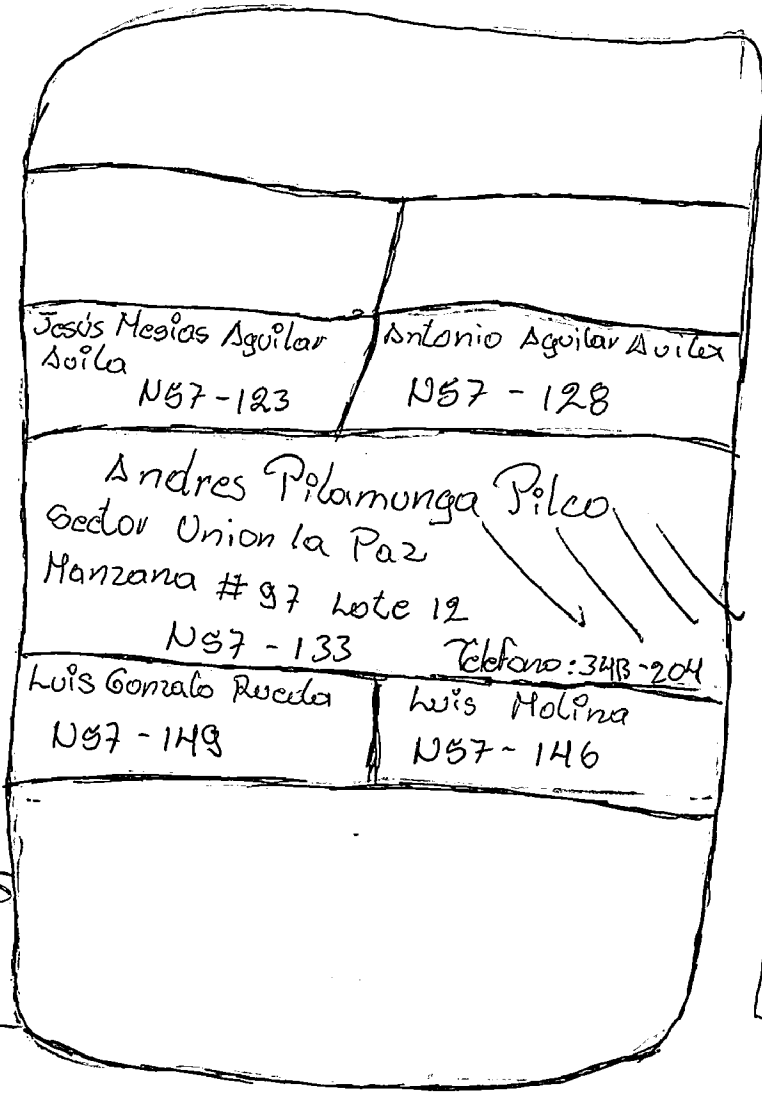 Jesús Mesias Aguilar
Avila
N57-123
Antonio Aguilar Avila
N57 - 128
Andres Pilamunga Pilco
Sector Union la Paz
Manzana # 97 Lote 12
N57 - 133
Telefono: 3413-204
Luis Gonzalo Rueda
N57 - 149
Luis Molina
N57 - 146